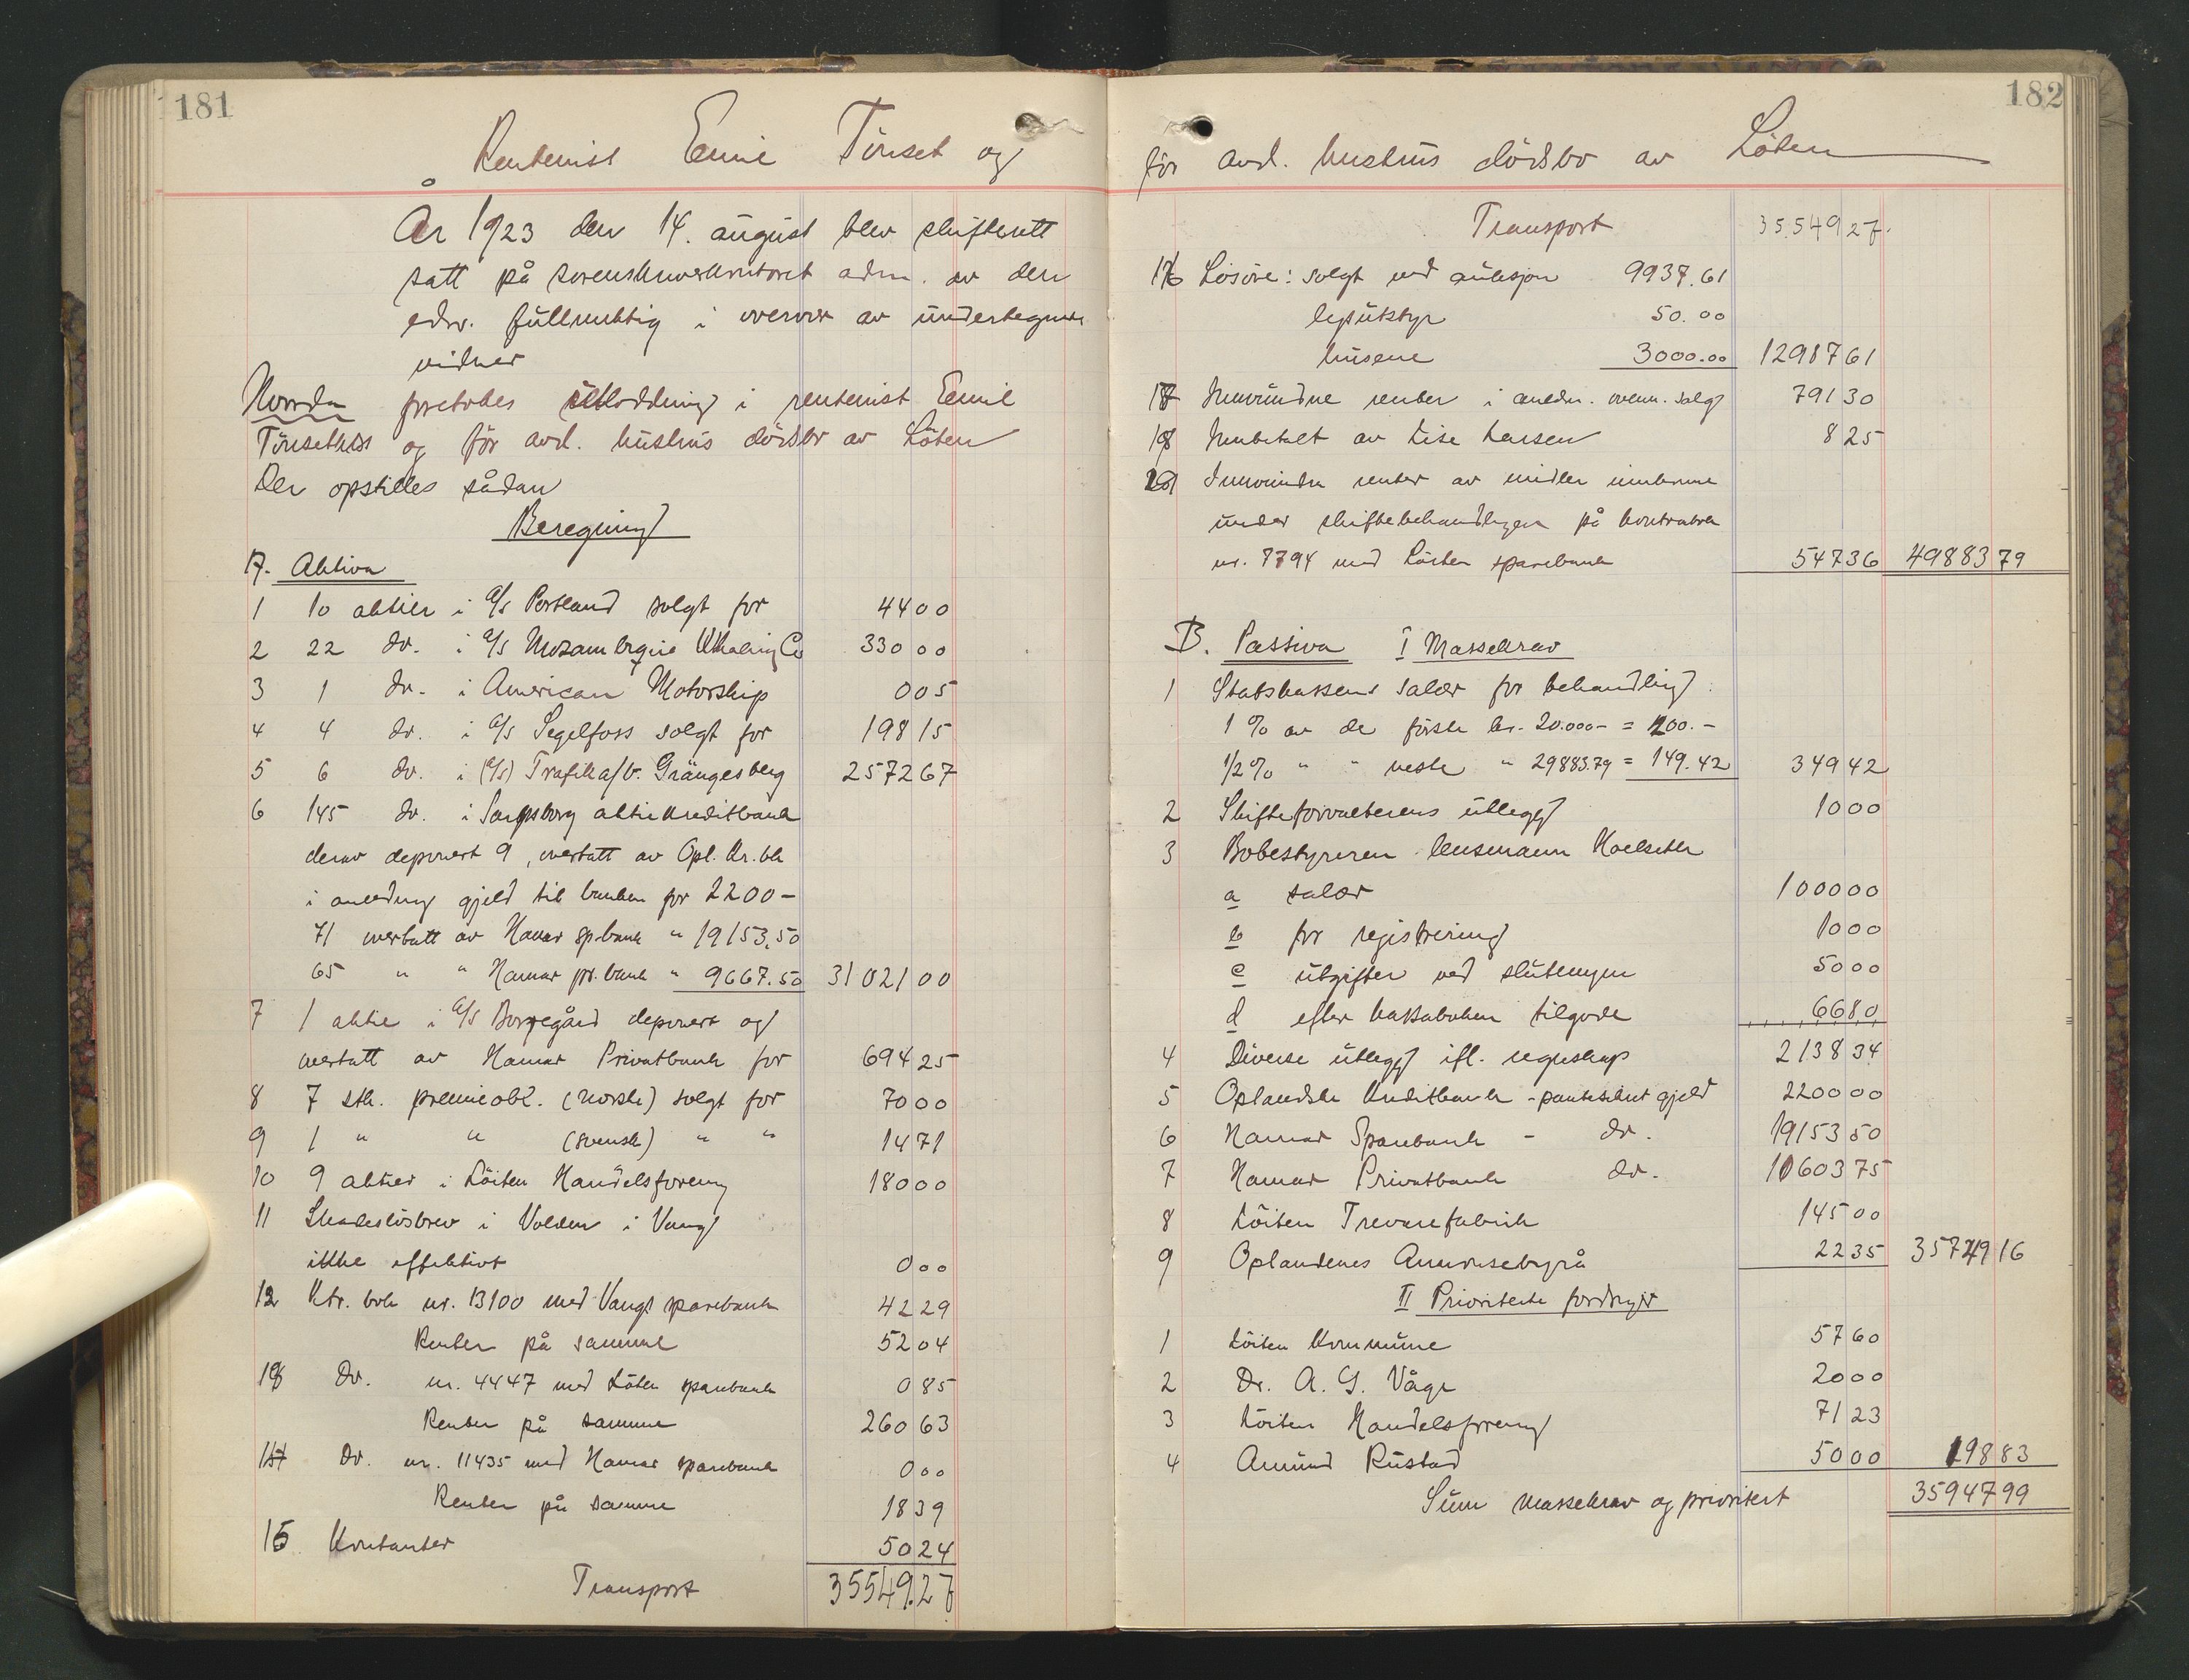 181
Rentenist Emil Tönset og
År 1923 den 14. august blev skifterett
satt på sorenskriverkontoret adm. av den
edsv. fullmektig i overvær av undertegnede
vidner
Hvorda foretokes utloddning i rentenist Emil
Tönseths og för avd. hustrus dödsbo av Löten
Der opstilles sådan
Beregning
A. Aktiva
1 10 aktier i A/S Portland solgt for 44 00
2 22 do. i A/S Mozambique Whaling Co 330 00
3 1 do. i American Motorship 0 05
4 4 do. i A/S Segelfoss solgt for 198 15
5 6 do. i (A/S) Trafik a/b. Grängesberg 2572 67
6 145 do. i Sarpsborg aktiekreditbank
derav deponert 9, overtatt av Opl. Kr. bk
i anledning gjeld til banken for 2200 -
71 overtatt av Hamar sp.bank " 19153,50
65 " " Hamar pr.bank " 9667.50 31021 00
7 1 aktie i A/S Borregård deponert og
overtatt av Hamar Privatbank for 694 25
8 7 stk. premieobl. (norske) solgt for 70 00
9 1 " " (svensk) " " 14 71
10 9 aktier i Löiten Handelsforening 180 00
11 Skadeslösbrev i Volden i Vang
ikke effektivt 0 00
12 Ktr. bok nr. 13100 med Vangs sparebank 42 29
Renter på samme 52 04
13 Do. nr. 4447 med Löten sparebank 0 85
Renter på samme 260 63
14 Do. nr. 11435 med Hamar sparebank 0 00
Renter på samme 18 39
15 Kontanter 50 24
Transport 35549.27
182
för avd. hustrus dödsbo av Löten
Transport 35.549 27.
16 Lösöre: solgt ved auksjon 9937.61
50.00
husene 3000.00 12987 61
17 Innvundne renter i anledn. ovenn. salg 791 30
18 Innbetalt av Lise Larsen 8 25
19 Innvundne renter av midler innkomne
under skiftebehandlingen på kontrabok
nr. 7794 med Löiten sparebank 547 36 49883 79
B. Passiva I Massekrav
1 Statskassens salær for behandling:
1 % av de förste kr. 20.000- = 200.-
1/2 % " " neste " 29883.79 = 149.42 349 42
2 Skifteforvalterens utlegg 10 00
3 Bobestyreren lensmann Kvelseth
a salær 1000 00
b for registrering 10 00
c utgifter ved slutningen 50 00
d efter kassaboken tilgode 66 80
4 Diverse utlegg ifl. regnskap 2138 34
5 Oplandske Kreditbank - pantesikret gjeld 2200 00
6 Hamar Sparebank - do. 19153 50
7 Hamar Privatbank do. 10603 75
8 Löiten Trevarefabrik 145 00
9 Oplandenes Annonsebyrå 22 35 35749 16
II Prioriterte fordringer
1 Löiten Kommune 57 60
2 Dr. A. G. Våge 20 00
3 Löiten Handelsforening 71 23
4 Amund Rustad 50 00 198 83
Sum massekrav og prioritert 35947 99